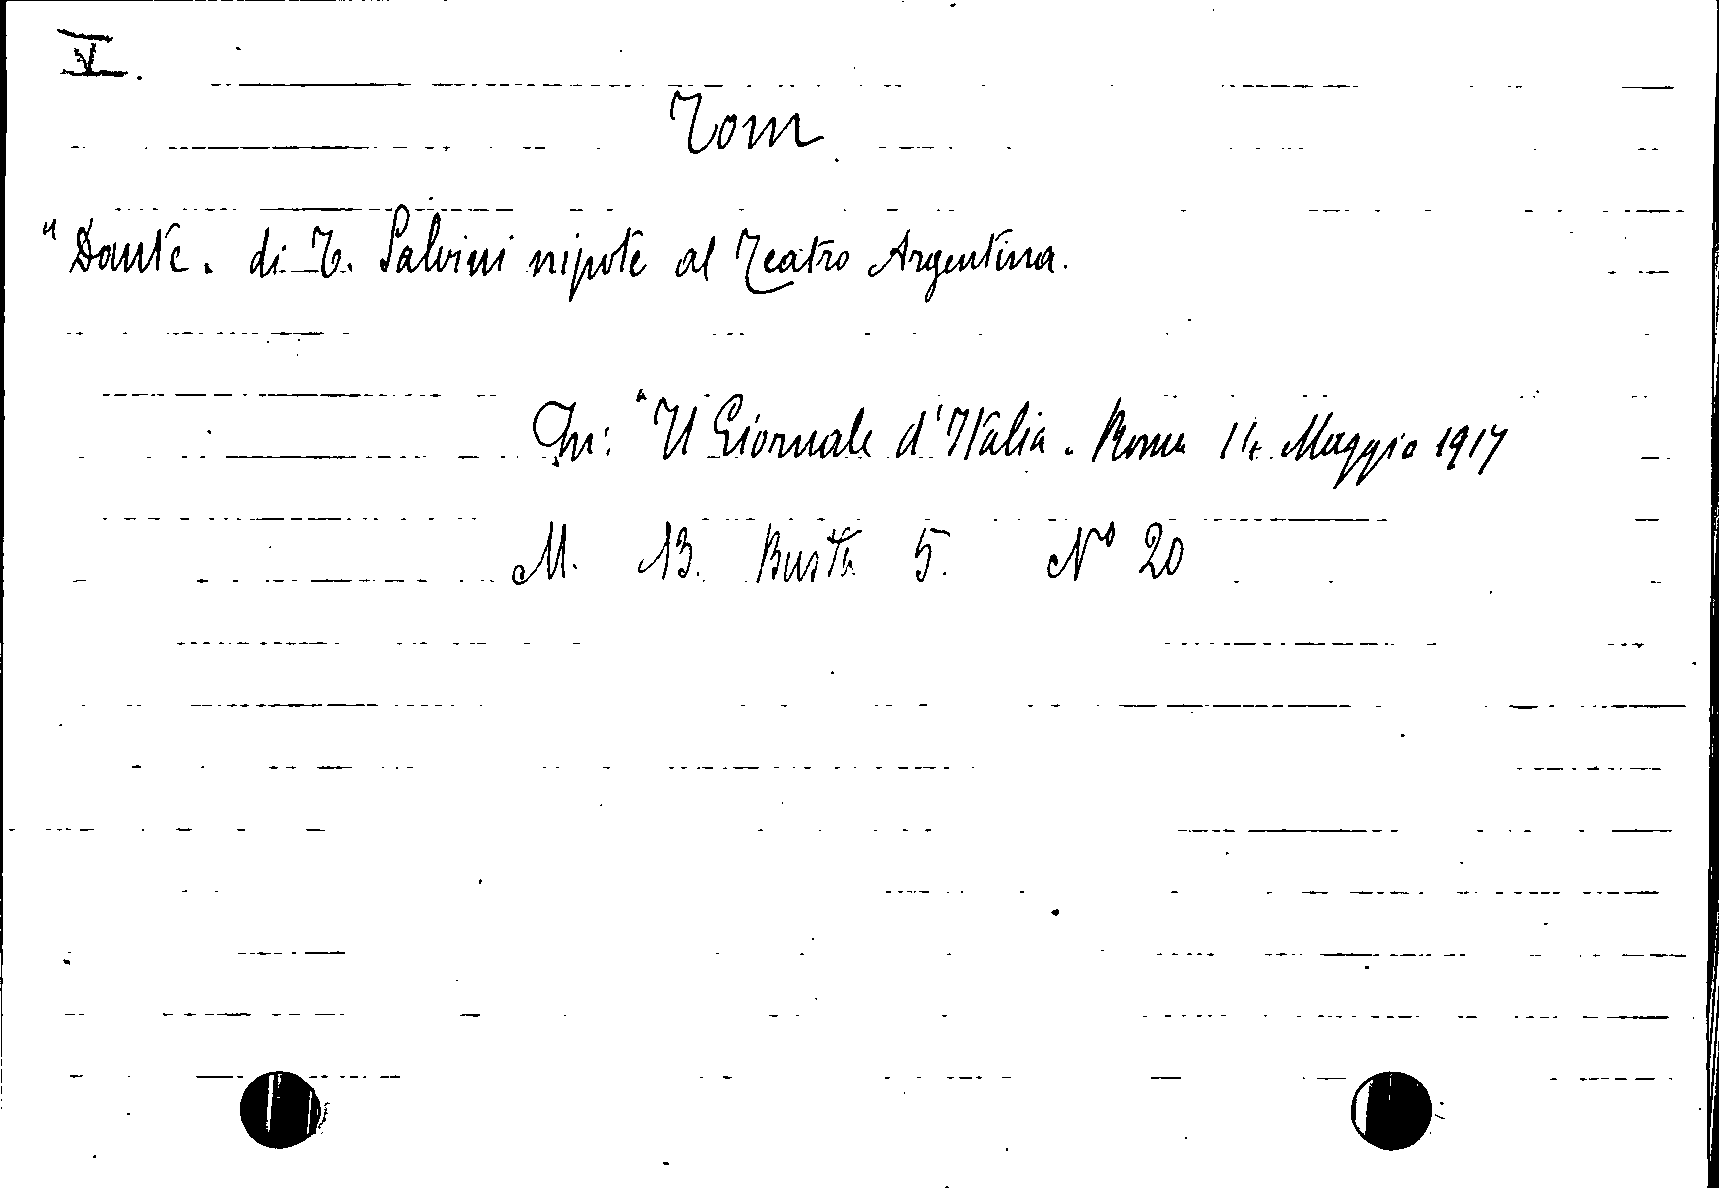 V.
Tom
"Dante. di T. Salvini nipote al Teatro Argentina.
In: "Il Giornale d'Italia. Roma 14 Maggio 1917
M. 13. Busta 5. Nº 20